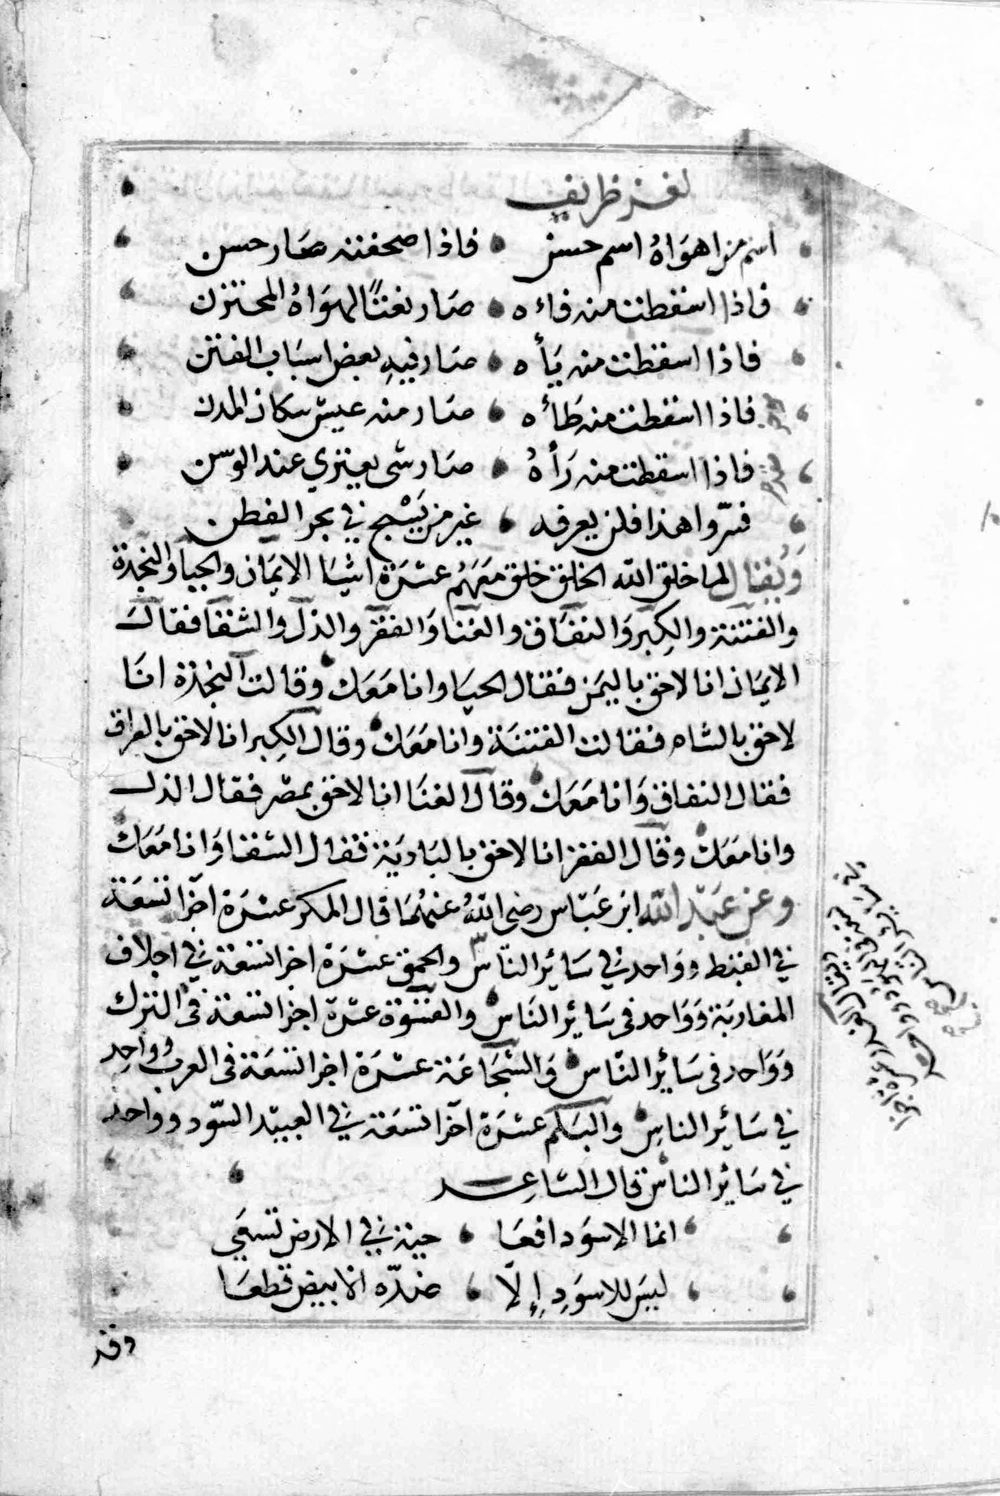 لغز ظريف
اسم من اهواهُ اسم حسن فاذا صحفته صار حسن
فاذا اسقطت منه فاءه صار نعتًا لهواهُ المختزن
فاذا اسقطت منه يأه صار فيهِ بعض اسباب الفتن
فاذا اسقطت منه طأه صار منه عيش سكان المدن
فاذا اسقطت منه رَأهُ صار شى يعتري عند الوسن
فسّروا هذا فلن يعرفه غير من يَسْبح في بحر الفطن
وَيُقال لما خلق الله الخلق خلق معَهُم عشرة اشيا الايمان والحيا والنجدة
والفتنة والكِبر وَالنفاق والغنا وَالفقر والذل والشقا فقال
الايمان انا لاحق باليمن فقال الحيا وانا معَك وقالت النجدة انا
لاحق بالشام فقالت الفتنة وانا معَك وقال الكِبر انا لاحق بالعراق
فقال النفاق وَانا معَك وقال الغنا انا لاحق بمصر فقال الذل
وانا معَك وقال الفقر انا لاحق بالبادية فقال الشقا وَانا معَك
وعن عَبد الله ابن عَبّاس رضى اللهُ عنهُما قال المكر عشرة اجزا تسعَة
في القبط وواحد في سَائر النّاس والحمق عشرة اجزا تسعة في اجلاف
المغاربة وَوَاحد فى سَائر النَاس والقسْوة عشرة اجزا تسعة فى الترك
وَوَاحد فى سَائر النّاس وَالشجَاعَة عشرة اجزا تسعَة فى العرب وواحِد
في سَائر الناس والبَكم عشرة اجزا تسعَة في العبيد السّود وواحد
في سَائر الناس قال الشاعر
انما الاسوَد افعَا حيّة في الارض تسعَي
ليسَ للاسوَدِ إِلّا ضدّه الابيض قطعَا
وقد